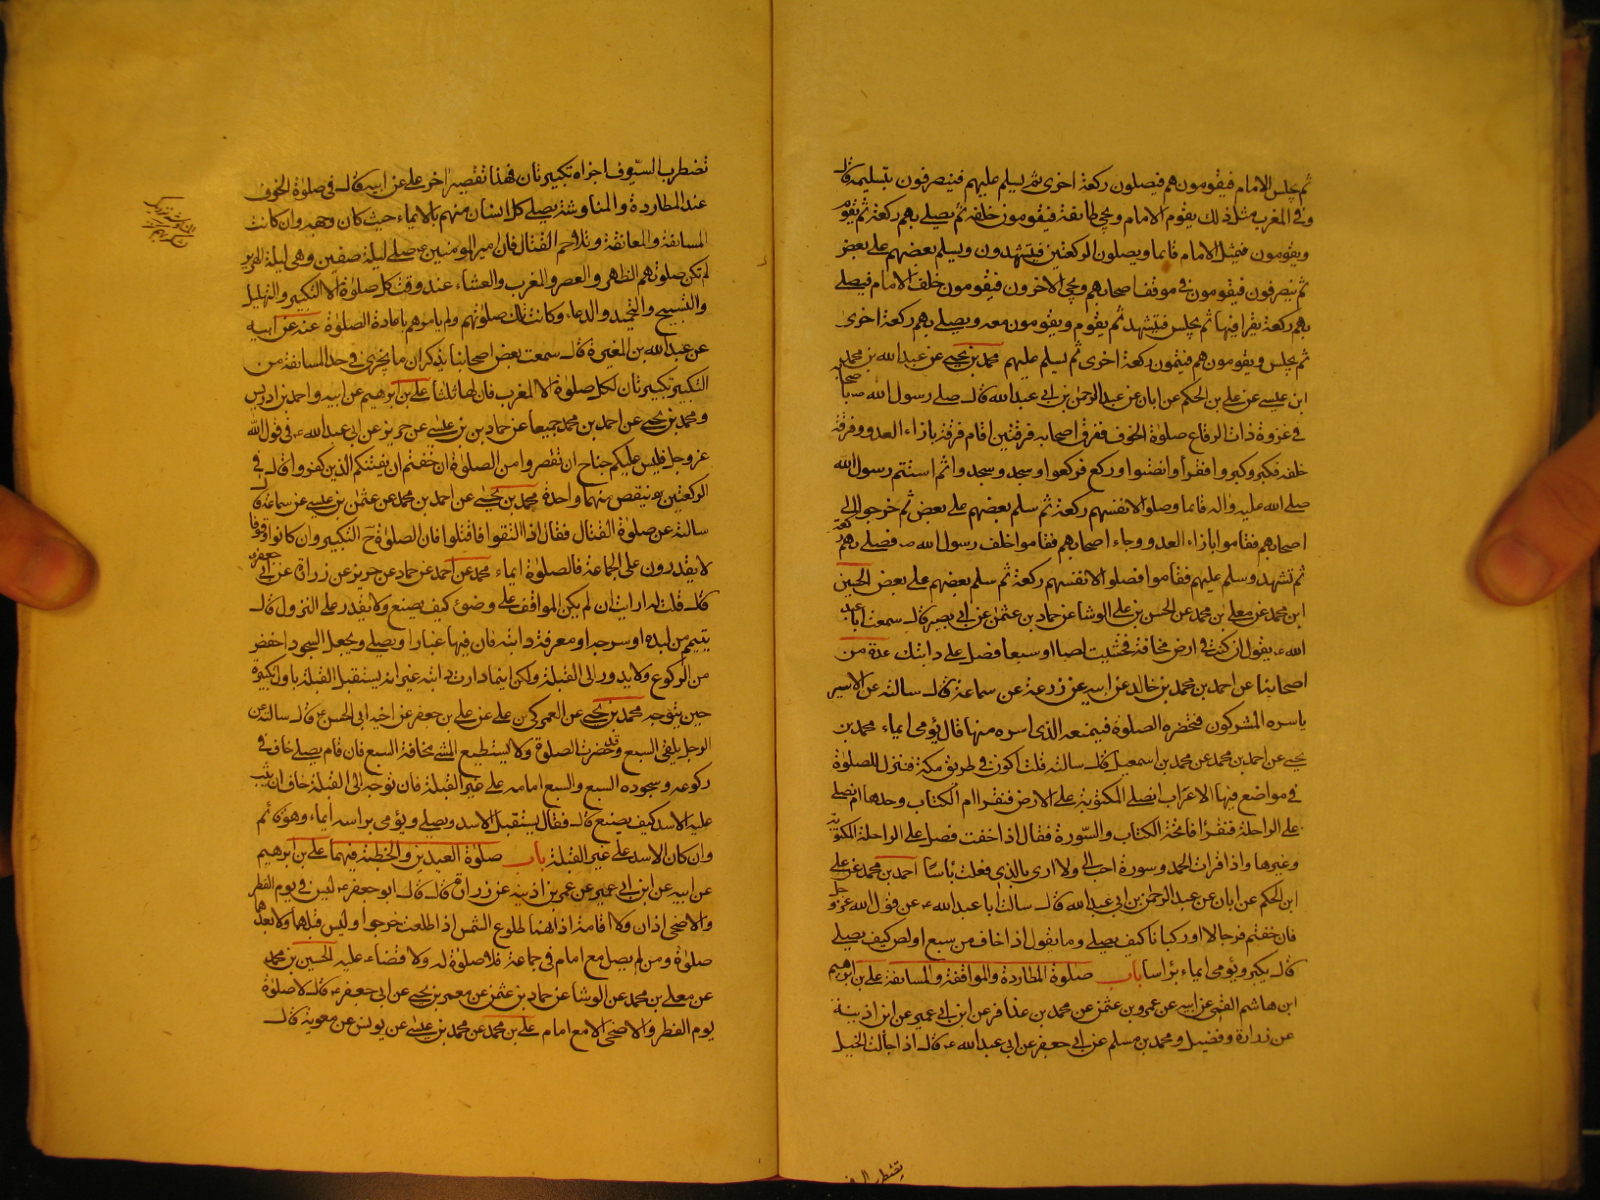 ثم يجلس الامام فيقومون هم فيصلون ركعة اخرى ثم يسلم عليهم فينصرفون بتسليمه قال
وفي المغرب مثل ذلك يقوم الامام ويجئ طائفة فيقومون خلفه ثم يصلي بهم ركعة ثم يقوم
ويقومون فيمثل الامام قائما ويصلون الركعتين فيتشهدون ويسلم بعضهم على بعض
ثم ينصرفون فيقومون في موقف اصحابهم ويجئ الاخرون فيقومون خلف الامام فيصلي
بهم ركعة يقرا فيها ثم يجلس فيتشهد ثم يقوم ويقومون معه ويصلي بهم ركعة اخرى
ثم يجلس ويقومون هم فيتمون ركعة اخرى ثم يسلم عليهم محمد بن يحيى عن عبد الله بن محمد بن
ابن عيسى عن علي بن الحكم عن ابان عن عبد الرحمن بن ابي عبد الله قال صلى رسول الله ص باصحابه
في غزوة ذات الرقاع صلوة الخوف ففرق اصحابه فرقتين اقام فرقة بازاء العدو وفرقة
خلفه فكبر وكبروا فقرأ وانصتوا وركع فركعوا وسجد وسجدوا ثم استتم رسول الله
صلى الله عليه واله قائما وصلوا لانفسهم ركعة ثم سلم بعضهم على بعض ثم خرجوا الى
اصحابهم فقاموا بازاء العدو وجاء اصحابهم فقاموا خلف رسول الله ص فصلى بهم ركعة
ثم تشهد وسلم عليهم فقاموا فصلوا لانفسهم ركعة ثم سلم بعضهم على بعض الحسين
ابن محمد عن معلى بن محمد عن الحسن بن علي الوشا عن حماد بن عثمن عن ابي بصير قال سمعت ابا عبد
الله ع يقول ان كنت في ارض مخافة فخشيت لصا او سبعا فصل على دابتك عدة من
اصحابنا عن احمد بن محمد بن خالد عن ابيه عن زرعة عن سماعة قال سالته عن الاسير
ياسره المشركون فتحضره الصلوة فيمنعه الذي اسره منها قال يؤمي ايماء محمد بن
يحيى عن احمد بن محمد عن محمد بن اسمعيل قال سالته قلت اكون في طريق مكة فننزل للصلوة
في مواضع فيها الاعراب ايصلي المكتوبة على الارض فنقرا ام الكتاب وحدها ام نصلي
على الراحلة فنقرأ فاتحة الكتاب والسورة فقال اذا خفت فصل على الراحلة المكتوبة
وغيرها واذا قرات الحمد وسورة احب الي ولا ارى بالذي فعلت باسا احمد بن محمد عن علي
ابن الحكم عن ابان عن عبد الرحمن بن ابي عبد الله قال سالت ابا عبد الله ع عن قول الله عز وجل
فان خفتم فرجالا او ركبانا كيف يصلي وما يقول اذا خاف من سبع او لص كيف يصلي
قال يكبر ويؤمي ايماء براسه باب صلوة المطاردة والمواقفة والمسايفة علي بن ابرهيم
ابن هاشم القمي عن ابيه عن عمرو بن عثمن عن محمد بن عذافر عن ابن ابي عمير عن ابن اذينة
عن زرارة وفضيل ومحمد بن مسلم عن ابي جعفر عن ابي عبد الله ع قال اذا جالت الخيل
تضطرب السيوف اجزاه تكبيرتان فهذا تقصير اخر علي عن ابيه قال في صلوة الخوف
عند المطاردة والمناوشة يصلي كل انسان منهم بالايماء حيث كان وجهه وان كانت
المسايفة والمعانقة وتلاحم القتال فان امير المومنين ع صلى ليلة صفين وهي ليلة الهرير
لم تكن صلوتهم الظهر والعصر والمغرب والعشاء عند وقت كل صلوة الا التكبير والتهليل
والتسبيح والتحميد والدعاء وكانت تلك صلوتهم ولم يامرهم باعادة الصلوة عنه عن ابيه
عن عبد الله بن المغيرة قال سمعت بعض اصحابنا يذكر ان ما يجزي في حد المسايفة من
التكبير تكبيرتان لكل صلوة الا المغرب فان لها ثلثا علي بن ابرهيم عن ابيه واحمد بن ادريس
ومحمد بن يحيى عن احمد بن محمد جميعا عن حماد بن عيسى عن حريز عن ابي عبد الله ع في قول الله
عز وجل فليس عليكم جناح ان تقصروا من الصلوة ان خفتم ان يفتنكم الذين كفروا قال في
الركعتين ينقص منهما واحدة محمد بن يحيى عن احمد بن محمد عن عثمن بن عيسى عن سماعة قال
سالته عن صلوة القتال فقال اذا التقوا فاقتلوا فان الصلوة ح التكبير وان كانوا وقوفا
لا يقدرون على الجماعة فالصلوة ايماء محمد عن احمد عن حماد عن حريز عن زرارة عن ابي جعفر ع
قال قلت له ارايت ان لم يكن المواقف على وضوء كيف يصنع ولا يقدر على النزول قال
يتيمم من لبده او سرجه او معرفة دابته فان فيها غبارا ويصلي ويجعل السجود اخفض
من الركوع ولا يدور الى القبلة ولكن اينما دارت دابته غير انه يستقبل القبلة باول تكبيرة
حين يتوجه محمد بن يحيى عن العمركي بن علي عن علي بن جعفر عن اخيه ابي الحسن ع قال سالته عن
الرجل يلقى السبع وقد حضرت الصلوة ولا يستطيع المشي مخافة السبع فان قام يصلي خاف في
ركوعه وسجوده السبع والسبع امامه على غير القبلة فان توجه الى القبلة خاف ان يثب
عليه الاسد كيف يصنع قال فقال يستقبل الاسد ويصلي ويؤمي براسه ايماء وهو قائم
وان كان الاسد على غير القبلة باب صلوة العيدين والخطبة فيهما علي بن ابرهيم
عن ابيه عن ابن ابي عمير عن عمر بن اذينة عن زرارة قال قال ابو جعفر ع ليس في يوم الفطر
والاضحى اذان ولا اقامة اذانهما طلوع الشمس اذا طلعت خرجوا وليس قبلها ولا بعدها
صلوة ومن لم يصل مع امام في جماعة فلا صلوة له ولا قضاء عليه الحسين بن محمد
عن معلى بن محمد عن الوشا عن حماد بن عثمن عن معمر بن يحيى عن ابي جعفر ع قال لا صلوة
يوم الفطر والاضحى الا مع امام علي بن محمد عن محمد بن عيسى عن يونس عن معوية قال